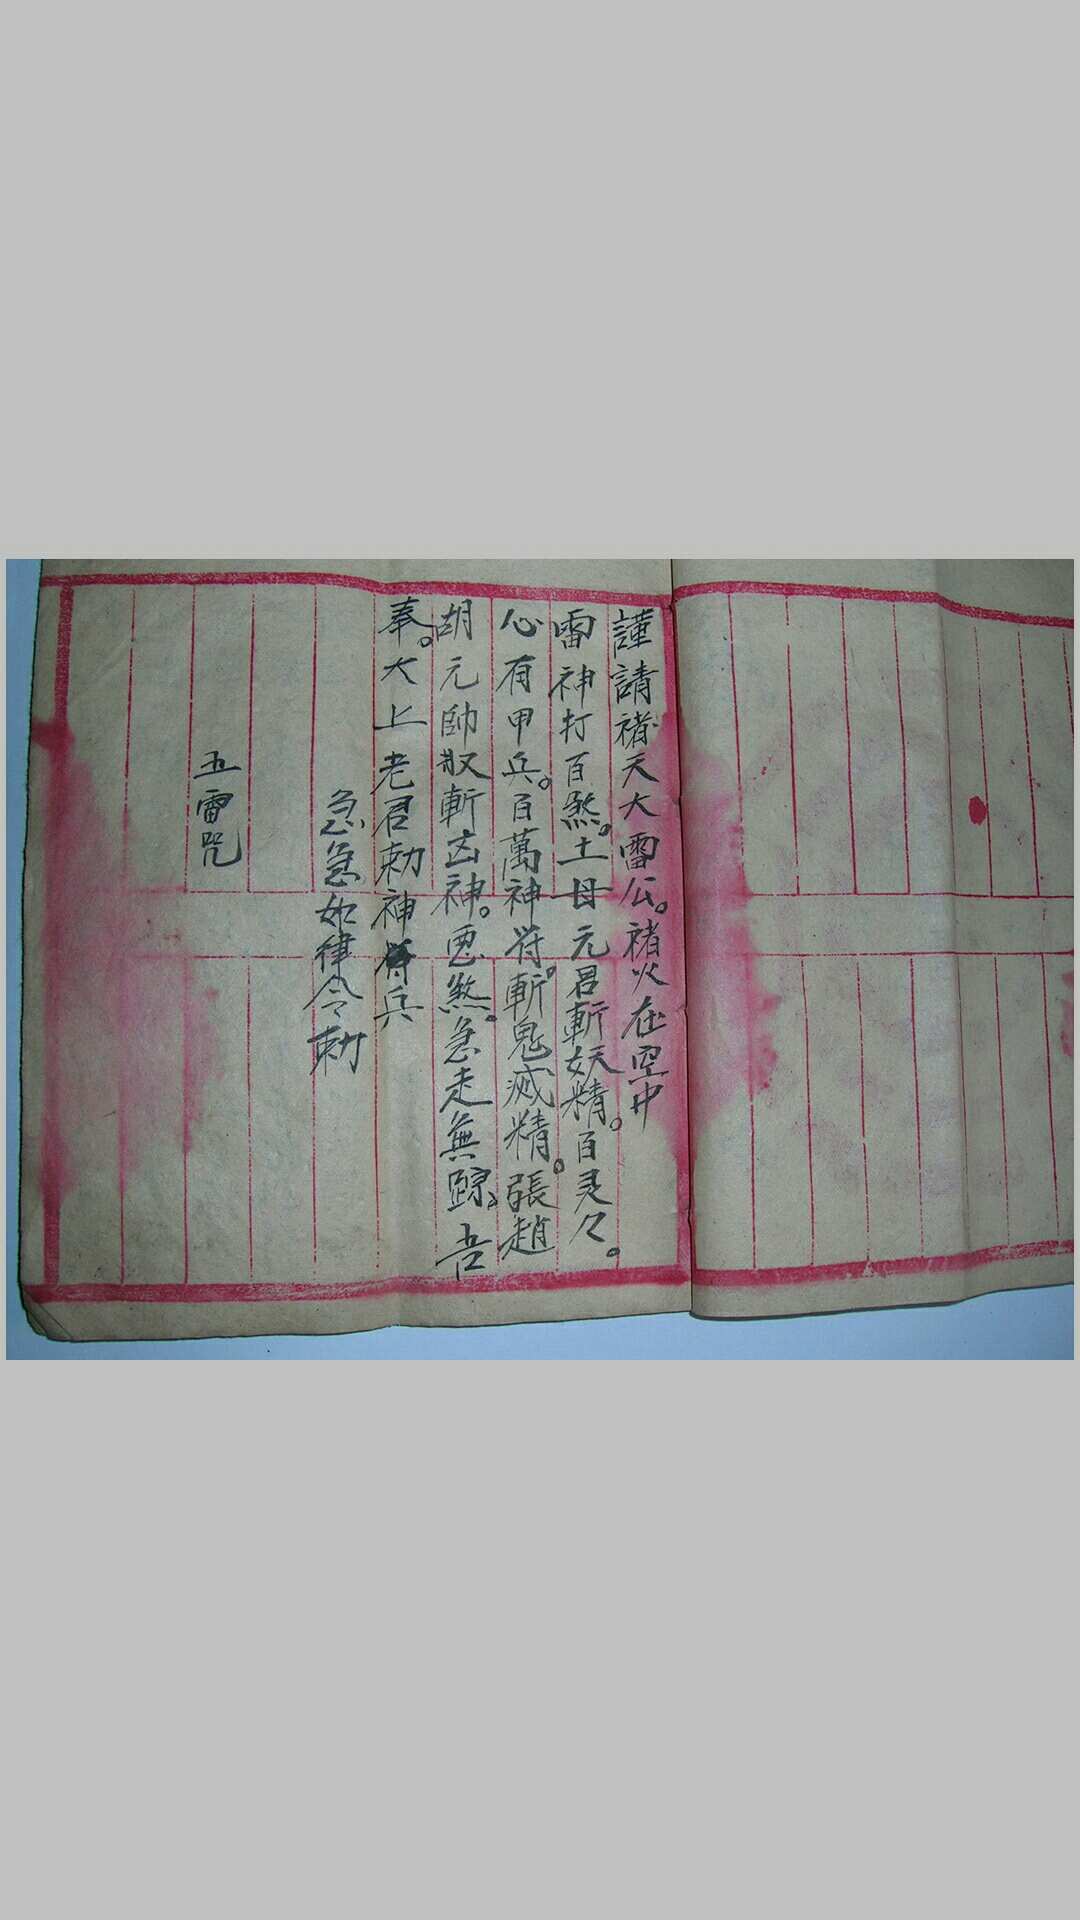 謹請禇天大雷公。禇火在空中
雷神打百煞。土母元君斬妖精。百灵々。
心有甲兵。百萬神符。斬鬼滅精。張趙
胡元帥㪚斬㐫神。惡煞。急走無踪。吉
奉。大上老君勅神兵
急急如律令勅
五雷咒